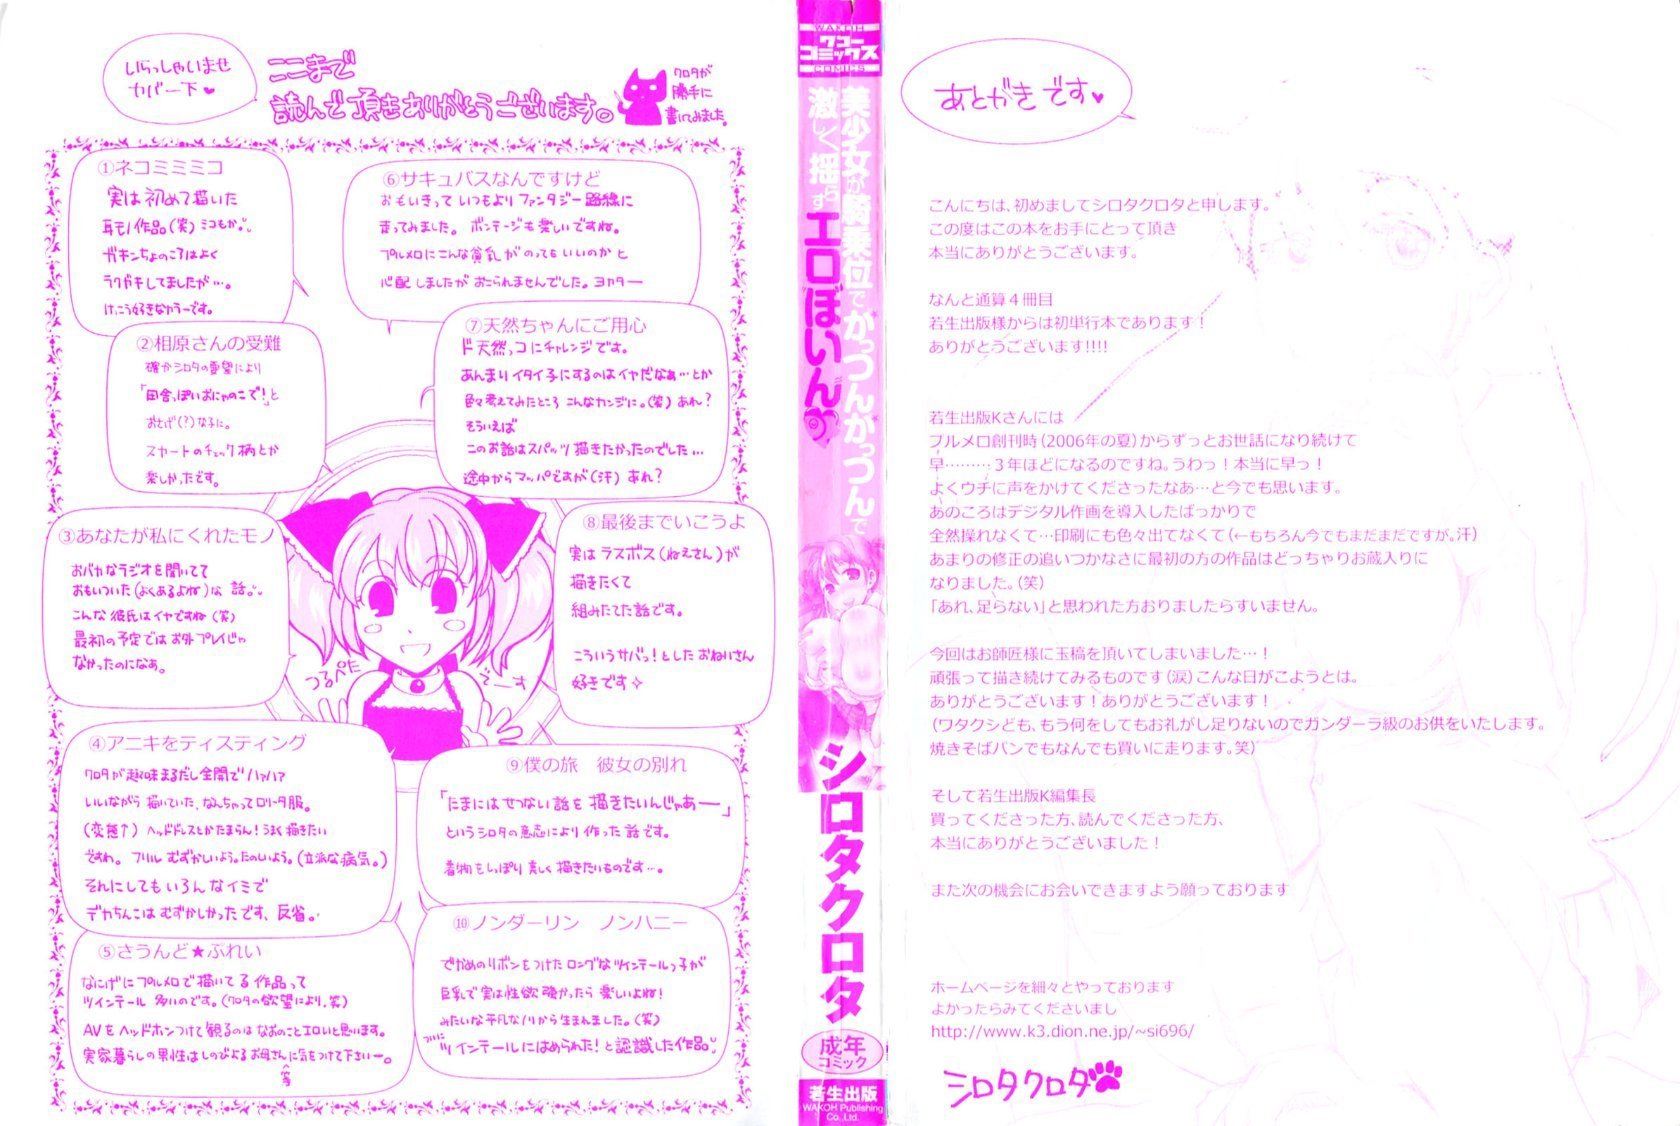 いらっしゃいませ
カバー下♥
ここまで
読んで頂きありがとうございます。
クロタが
勝手に
書いてみました。
①ネコミミミコ
実は初めて描いた
耳モノ作品。(笑)ミコもか。
ガキンちょのころはよく
ラクガキしてましたが…。
けっこう好きなカラーです。
②相原さんの受難
確かシロタの要望により
「田舎っぽいおにゃのこで!」と
おさげ(?)な子に。
スカートのチェック柄とか
楽しかったです。
③あなたが私にくれたモノ
おバカなラジオを聞いてて
おもいついた(よくあるよね)な 話。
こんな彼氏はイヤですね(笑)
最初の予定ではお外プレイじゃ
なかったのになあ。
④アニキをティスティング
クロタが趣味まるだし全開でハァハァ
いいながら描いていた、なんちゃってロリータ服。
(変態↑)ヘッドドレスとかたまらん!うまく描きたい
ですわ。フリルむずかしいよう。たのしいよう。(立派な病気。)
それにしてもいろんなイミで
デカちんこはむずかしかったです、反省。
⑤さうんど★ぷれい
なにげにプルメロで描いてる作品って
ツインテール多いのです。(クロタの欲望により。笑)
AVをヘッドホンつけて観るのはなおのことエロいと思います。
実家暮らしの男性はしのびよるお母さんに気をつけて下さいー。
等
⑥サキュバスなんですけど
おもいきっていつもよりファンタジー路線に
走ってみました。ボンテージも楽しいですね。
プルメロにこんな貧乳がのってもいいのかと
心配しましたがおこられませんでした。ヨカター
⑦天然ちゃんにご用心
ド天然っコにチャレンジです。
あんまりイタイ子にするのはイヤだなぁ…とか
色々考えてみたところこんなカンジに。(笑)あれ?
そういえば
このお話はスパッツ描きたかったのでした…
途中からマッパですが(汗)あれ?
つるぺた
でーす
⑧最後までいこうよ
実はラスボス(ねえさん)が
描きたくて
組みたてた話です。
こういうサバっ!としたおねいさん
好きです✧
⑨僕の旅 彼女の別れ
「たまにはせつない話を描きたいんじゃあー」
というシロタの意志により作った話です。
着物をしっぽり美しく描きたいものです…。
⑩ノンダーリン ノンハニー
でかめのリボンをつけたロングなツインテールっ子が
巨乳で実は性欲強かったら楽しいよね!
みたいな平凡なノリから生まれました。(笑)
ついに
ツインテールにはめられた!と認識した作品。
WAKOH
ワコー
コミックス
COMICS
美少女が騎乗位でがっつんがっつんで
激しく揺らす
エロぼいん♥
シロタクロタ
成年
コミック
若生出版
WAKOH Publishing
Co.,Ltd.
あとがきです♥
こんにちは、初めましてシロタクロタと申します。
この度はこの本をお手にとって頂き
本当にありがとうございます。
なんと通算4冊目
若生出版様からは初単行本であります!
ありがとうございます!!!!
若生出版Kさんには
プルメロ創刊時(2006年の夏)からずっとお世話になり続けて
早………3年ほどになるのですね。うわっ!本当に早っ!
よくウチに声をかけてくださったなあ…と今でも思います。
あのころはデジタル作画を導入したばっかりで
全然操れなくて…印刷にも色々出てなくて(←もちろん今でもまだまだですが。汗)
あまりの修正の追いつかなさに最初の方の作品はどっちゃりお蔵入りに
なりました。(笑)
「あれ、足らない」と思われた方おりましたらすいません。
今回はお師匠様に玉稿を頂いてしまいました…!
頑張って描き続けてみるものです(涙)こんな日がこようとは。
ありがとうございます!ありがとうございます!
(ワタクシども、もう何をしてもお礼がし足りないのでガンダーラ級のお供をいたします。
焼きそばパンでもなんでも買いに走ります。笑)
そして若生出版K編集長
買ってくださった方、読んでくださった方、
本当にありがとうございました!
また次の機会にお会いできますよう願っております
ホームページを細々とやっております
よかったらみてくださいまし
http://www.k3.dion.ne.jp/~si696/
シロタクロタ